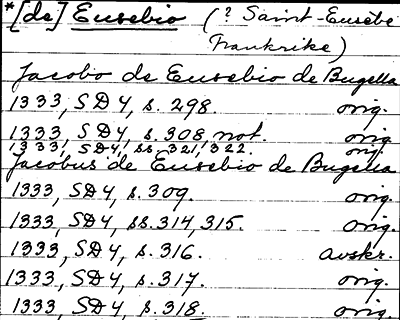 *[de] Eusebio (? Saint-Eusèbe
Frankrike)
Jacobo de Eusebio de Bugella
1333, SD4, s. 298. orig.
1333, SD4, s. 308 not. orig.
1333, SD4, ss. 321, 322. orig.
Jacobus de Eusebio de Bugella
1333, SD4, s. 309. orig.
1333, SD4, ss. 314, 315. orig.
1333, SD4, s. 316. avskr.
1333, SD4, s. 317. orig.
1333, SD4, s. 318. orig.